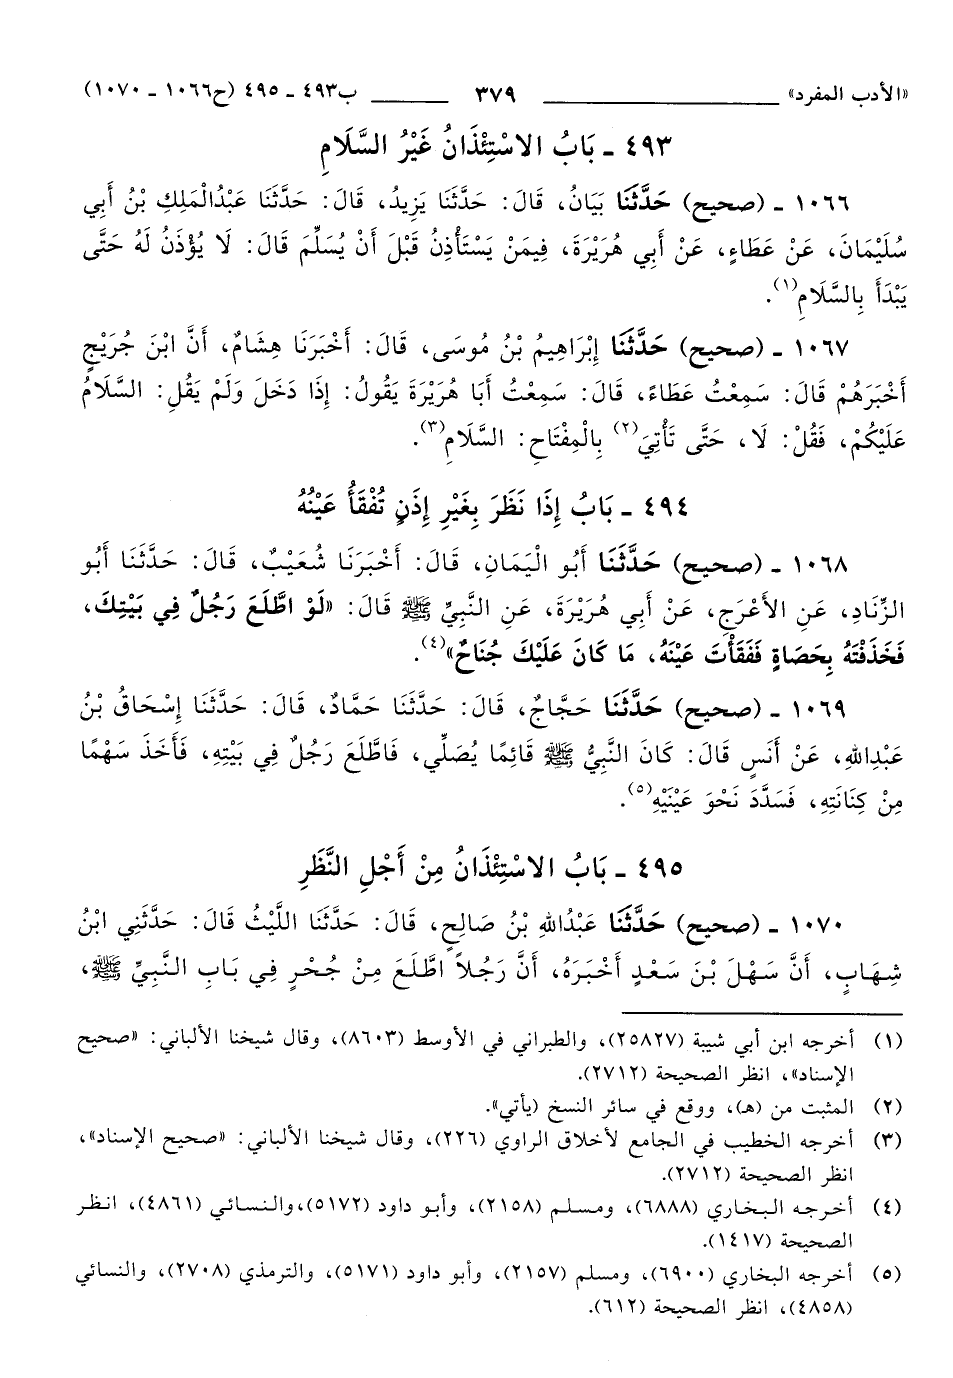 «الأدب المفرد» ٣٧٩ ب٤٩٣ ـ ٤٩٥ (ح١٠٦٦ ـ ١٠٧٠)
٤٩٣ ـ بَابُ الاسْتِئْذَانُ غَيْرُ السَّلَامِ
١٠٦٦ ـ (صحيح) حَدَّثَنَا بَيَانُ، قَالَ: حَدَّثَنَا يَزِيدُ، قَالَ: حَدَّثَنَا عَبْدُالْمَلِكِ بْنُ أَبِي
سُلَيْمَانَ، عَنْ عَطَاءٍ، عَنْ أَبِي هُرَيْرَةَ، فِيمَنْ يَسْتَأْذِنُ قَبْلَ أَنْ يُسَلِّمَ قَالَ: لَا يُؤْذَنُ لَهُ حَتَّى
يَبْدَأَ بِالسَّلَامِ(١).
١٠٦٧ ـ (صحيح) حَدَّثَنَا إِبْرَاهِيمُ بْنُ مُوسَى، قَالَ: أَخْبَرَنَا هِشَامٌ، أَنَّ ابْنَ جُرَيْجٍ
أَخْبَرَهُمْ قَالَ: سَمِعْتُ عَطَاءً، قَالَ: سَمِعْتُ أَبَا هُرَيْرَةَ يَقُولُ: إِذَا دَخَلَ وَلَمْ يَقُلِ: السَّلَامُ
عَلَيْكُمْ، فَقُلْ: لَا، حَتَّى تَأْتِيَ(٢) بِالْمِفْتَاحِ: السَّلَامِ(٣).
٤٩٤ ـ بَابُ إِذَا نَظَرَ بِغَيْرِ إِذَنٍ تُفْقَأُ عَيْنُهُ
١٠٦٨ ـ (صحيح) حَدَّثَنَا أَبُو الْيَمَانِ، قَالَ: أَخْبَرَنَا شُعَيْبٌ، قَالَ: حَدَّثَنَا أَبُو
الزِّنَادِ، عَنِ الأَعْرَجِ، عَنْ أَبِي هُرَيْرَةَ، عَنِ النَّبِيِّ ﷺ قَالَ: «لَوْ اطَّلَعَ رَجُلٌ فِي بَيْتِكَ،
فَخَذَفْتَهُ بِحَصَاةٍ فَفَقَأْتَ عَيْنَهُ، مَا كَانَ عَلَيْكَ جُنَاحٌ»(٤).
١٠٦٩ ـ (صحيح) حَدَّثَنَا حَجَّاجٌ، قَالَ: حَدَّثَنَا حَمَّادٌ، قَالَ: حَدَّثَنَا إِسْحَاقُ بْنُ
عَبْدِاللهِ، عَنْ أَنَسٍ قَالَ: كَانَ النَّبِيُّ ﷺ قَائِمًا يُصَلِّي، فَاطَّلَعَ رَجُلٌ فِي بَيْتِهِ، فَأَخَذَ سَهْمًا
مِنْ كِنَانَتِهِ، فَسَدَّدَ نَحْوَ عَيْنَيْهِ(٥).
٤٩٥ ـ بَابُ الاسْتِئْذَانُ مِنْ أَجْلِ النَّظَرِ
١٠٧٠ ـ (صحيح) حَدَّثَنَا عَبْدُاللهِ بْنُ صَالِحٍ، قَالَ: حَدَّثَنَا اللَّيْثُ قَالَ: حَدَّثَنِي ابْنُ
شِهَابٍ، أَنَّ سَهْلَ بْنَ سَعْدٍ أَخْبَرَهُ، أَنَّ رَجُلاً اطَّلَعَ مِنْ جُحْرٍ فِي بَابِ النَّبِيِّ ﷺ،
(١) أخرجه ابن أبي شيبة (٢٥٨٢٧)، والطبراني في الأوسط (٨٦٠٣)، وقال شيخنا الألباني: «صحيح
الإسناد»، انظر الصحيحة (٢٧١٢).
(٢) المثبت من (هـ)، ووقع في سائر النسخ (يأتي».
(٣) أخرجه الخطيب في الجامع لأخلاق الراوي (٢٢٦)، وقال شيخنا الألباني: «صحيح الإسناد»،
انظر الصحيحة (٢٧١٢).
(٤) أخرجه البخاري (٦٨٨٨)، ومسلم (٢١٥٨)، وأبو داود (٥١٧٢)،والنسائي (٤٨٦١)، انظر
الصحيحة (١٤١٧).
(٥) أخرجه البخاري (٦٩٠٠)، ومسلم (٢١٥٧)، وأبو داود (٥١٧١)، والترمذي (٢٧٠٨)، والنسائي
(٤٨٥٨)، انظر الصحيحة (٦١٢).